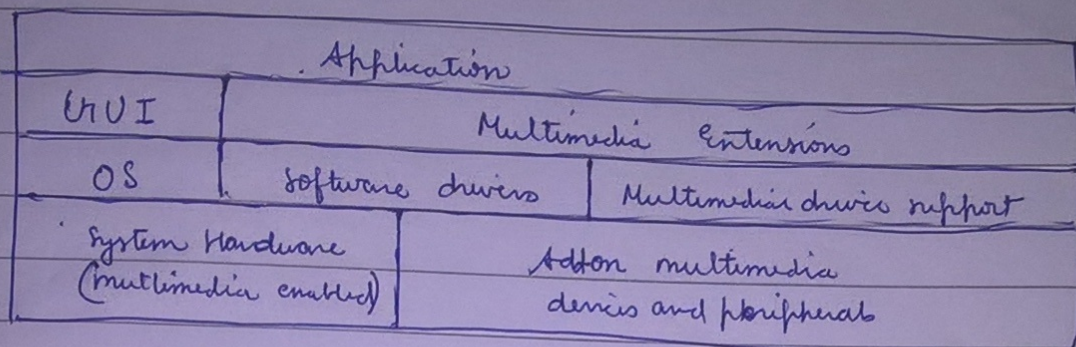 Application
GUI
Multimedia Extensions
OS
Software drivers
Multimedia driver support
System Hardware
(mutlimedia enabled)
Addon multimedia
devices and peripherals